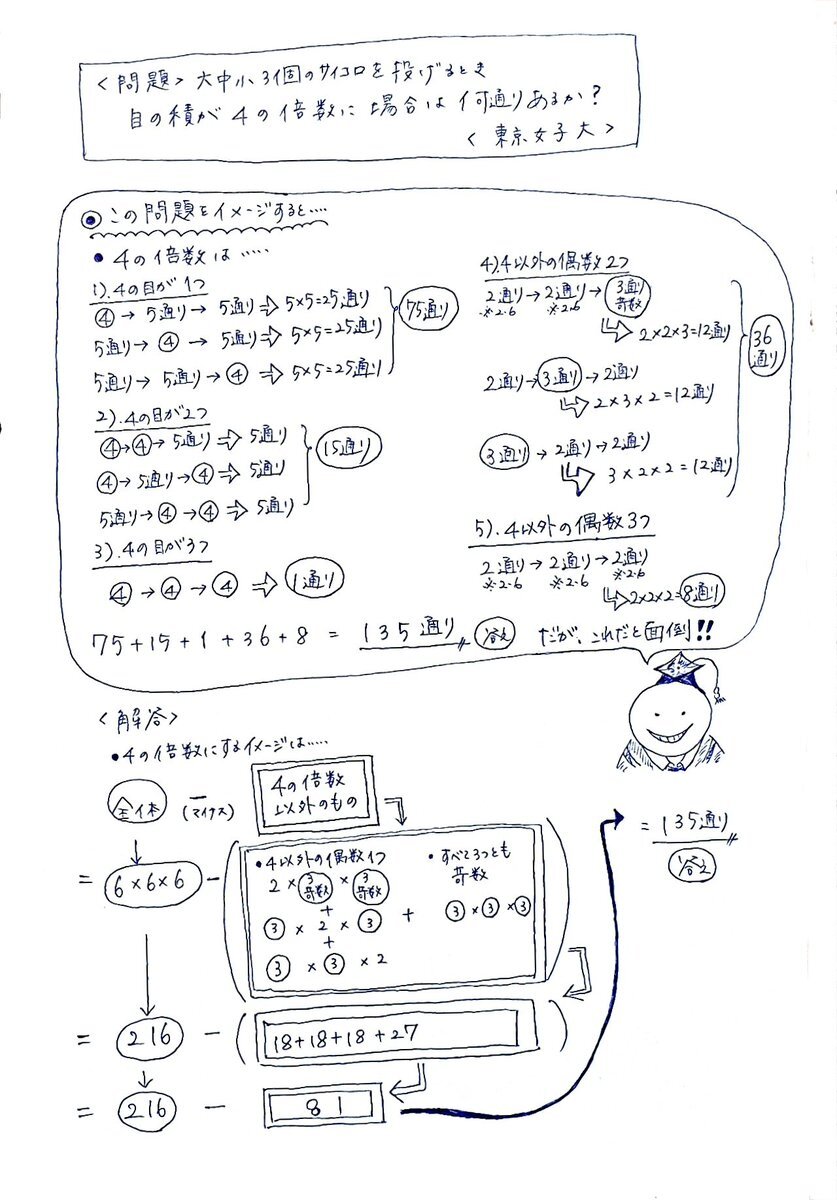 <問題> 大中小3個のサイコロを投げるとき
目の積が4の倍数に場合は何通りあるか?
<東京女子大>
この問題をイメージすると....
• 4の倍数は.....
1).4の目が1つ
④→5通り→5通り⇒5×5=25通り
5通り→④→5通り⇒5×5=25通り
5通り→5通り→④⇒5×5=25通り
75通り
2).4の目が2つ
④→④→5通り⇒5通り
④→5通り→④⇒5通り
5通り→④→④⇒5通り
15通り
3).4の目が3つ
④→④→④⇒1通り
4).4以外の偶数2つ
2通り→2通り→3通り奇数
※2・6 ※2・6
2×2×3=12通り
2通り→3通り→2通り
2×3×2=12通り
3通り→2通り→2通り
3×2×2=12通り
36通り
5).4以外の偶数3つ
2通り→2通り→2通り
※2・6 ※2・6 ※2・6
2×2×2=8通り
75+15+1+36+8=135通り 答え だが、これだと面倒!!
<解答>
•4の倍数にするイメージは.....
全体 (マイナス) 4の倍数
以外のもの
•4以外の偶数1つ
2×3奇数×3奇数
+
③×2×③
+
③×③×2
+
•すべて3つとも
奇数
③×③×③
=6×6×6-
=216-(18+18+18+27)
=216-81
=135通り
答え